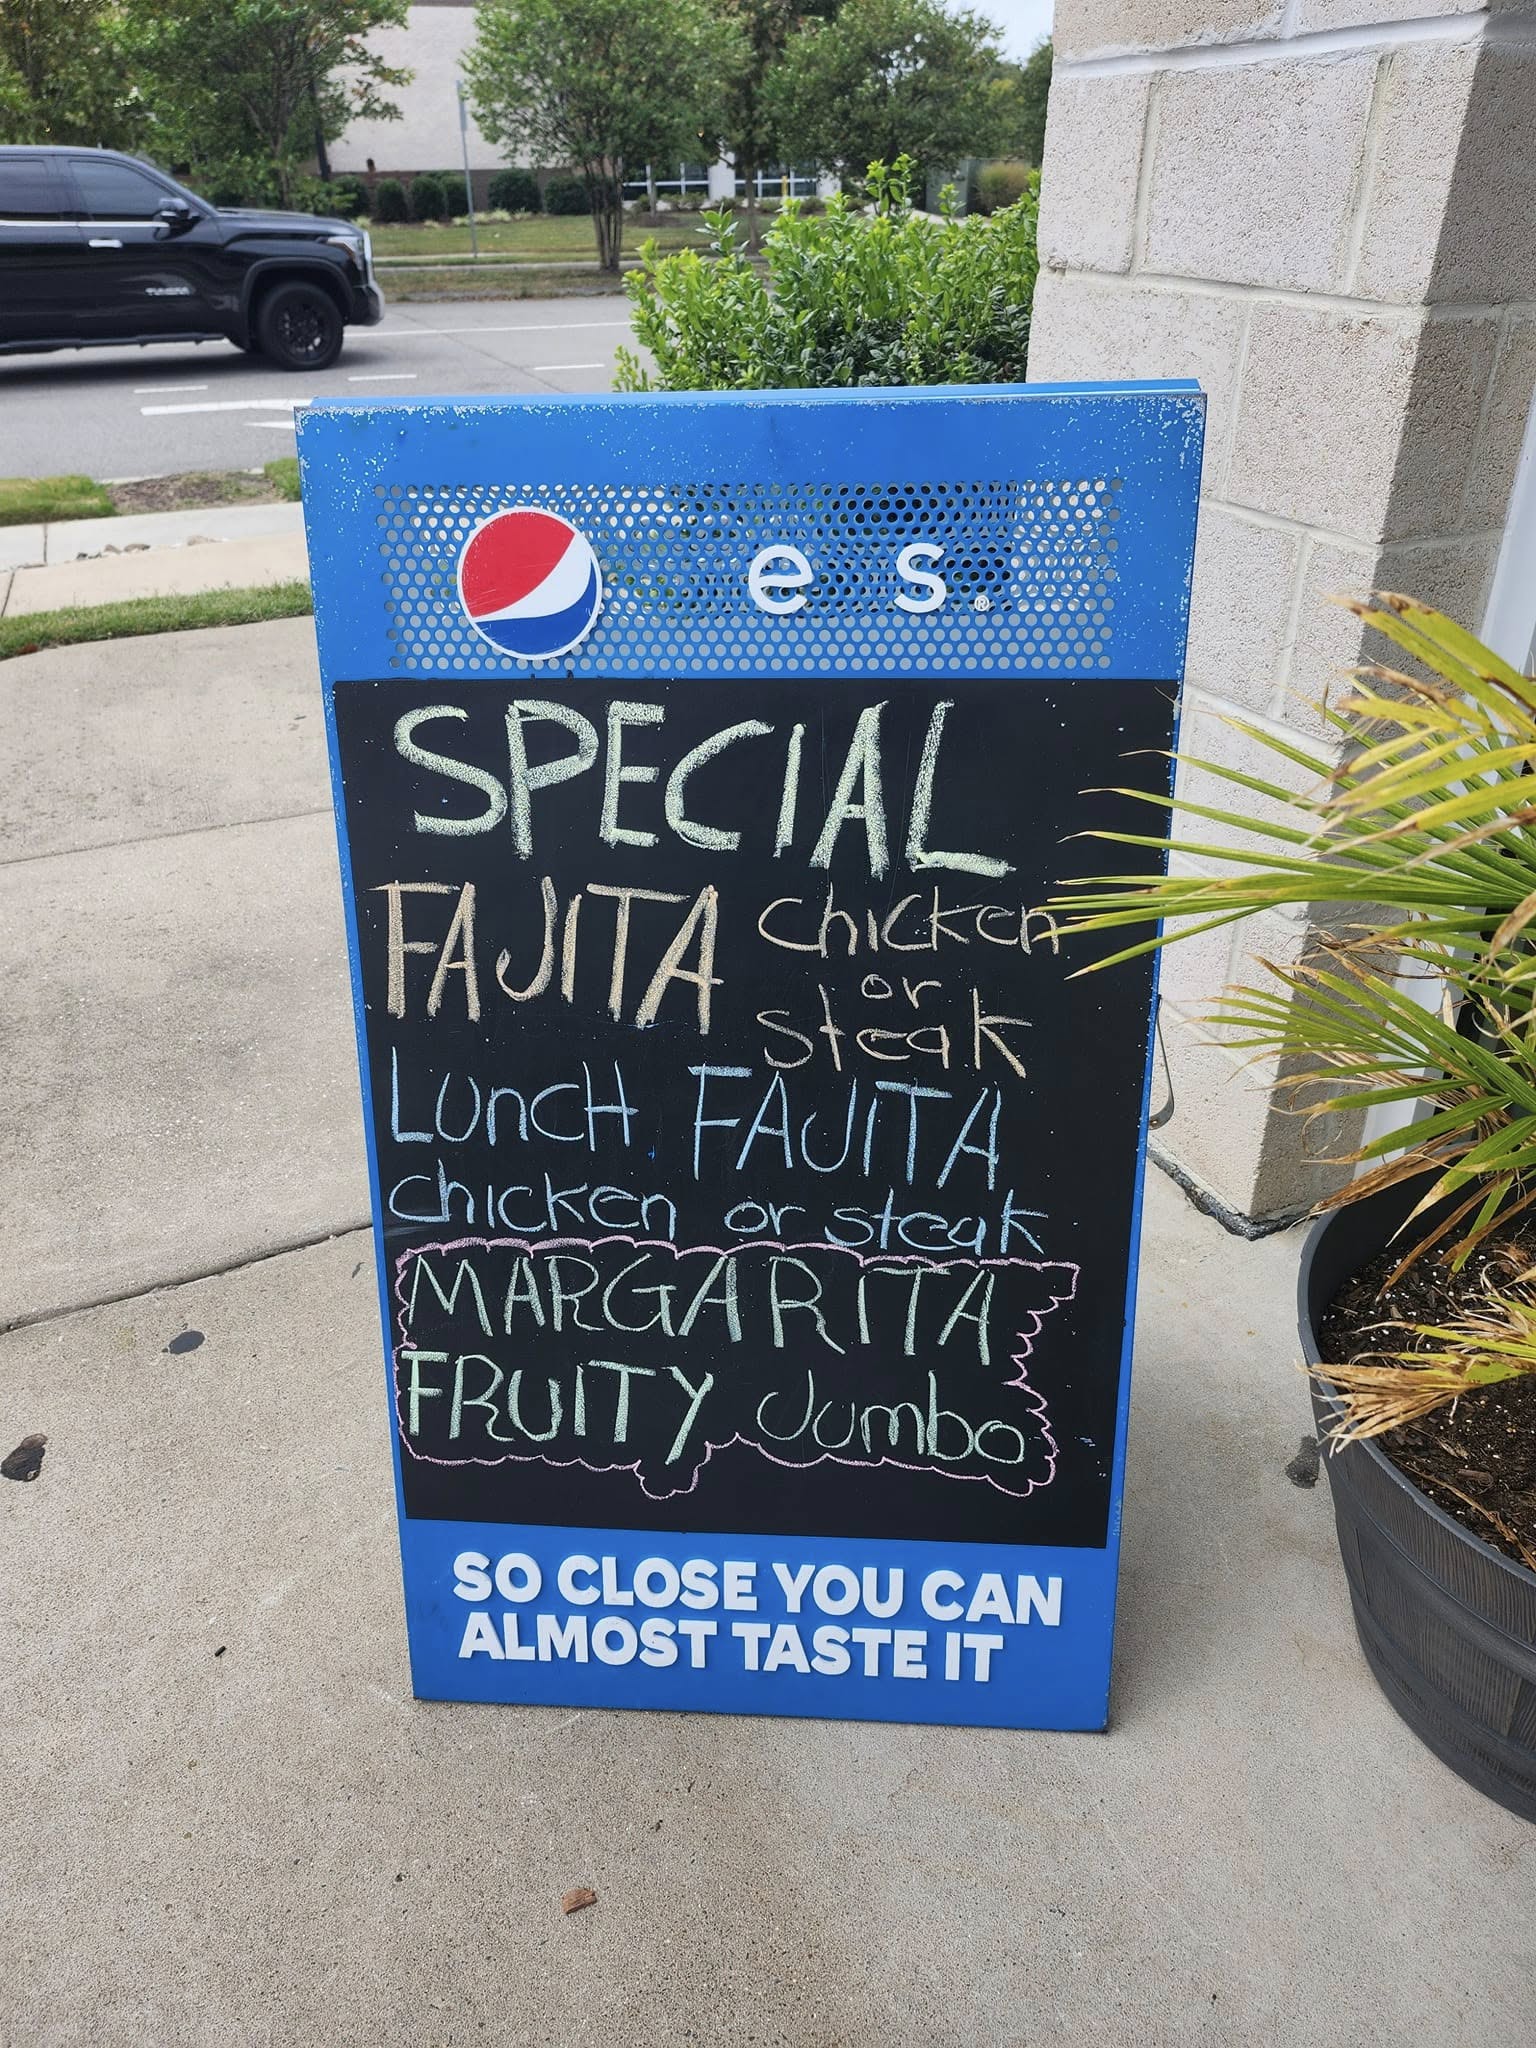 TUNDRA
e s®
SPECIAL
FAJITA chicken
or
steak
LUnCH FAJITA
chicken or steak
MARGARITA
FRUITY Jumbo
SO CLOSE YOU CAN
ALMOST TASTE IT